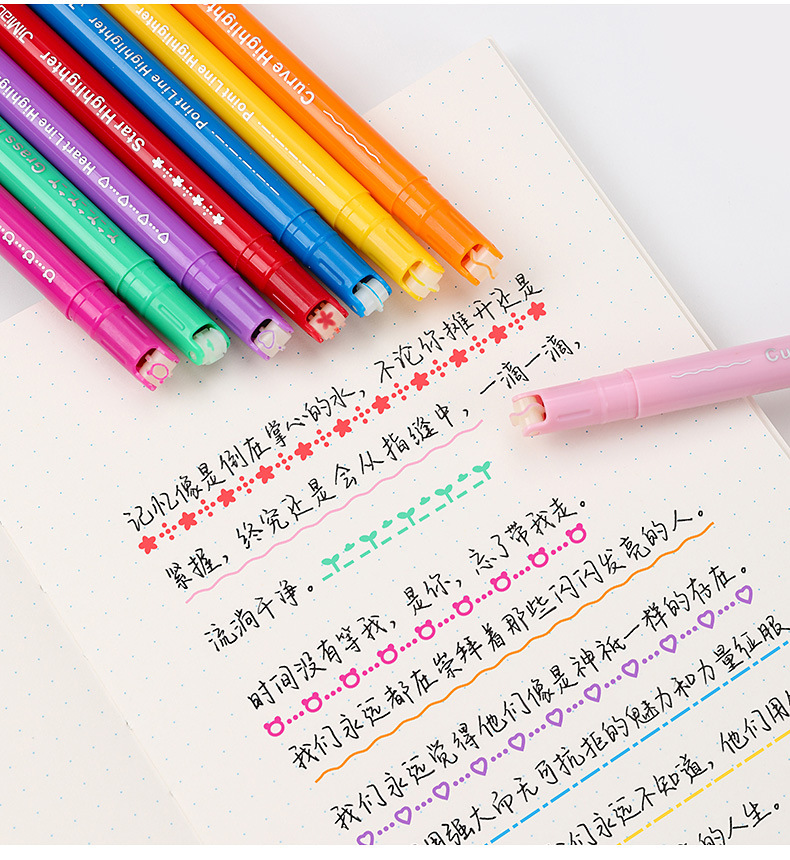 Curve Highlighter
Point Line Highlighter
Point Line Highlighter
Star Highlighter JIMIda
Heart Line Highlighter
Grass
Cu
记忆像是倒在掌心的水，不论你摊开还是
紧握，终究还是会从指缝中，一滴一滴，
流淌干净。
时间没有等我，是你，忘了带我走。
我们永远都在崇拜着那些闪闪发亮的人。
我们永远觉得他们像是神祇一样的存在。
用强大而无可抗拒的魅力和力量征服
们永远不知道，他们用
的人生。